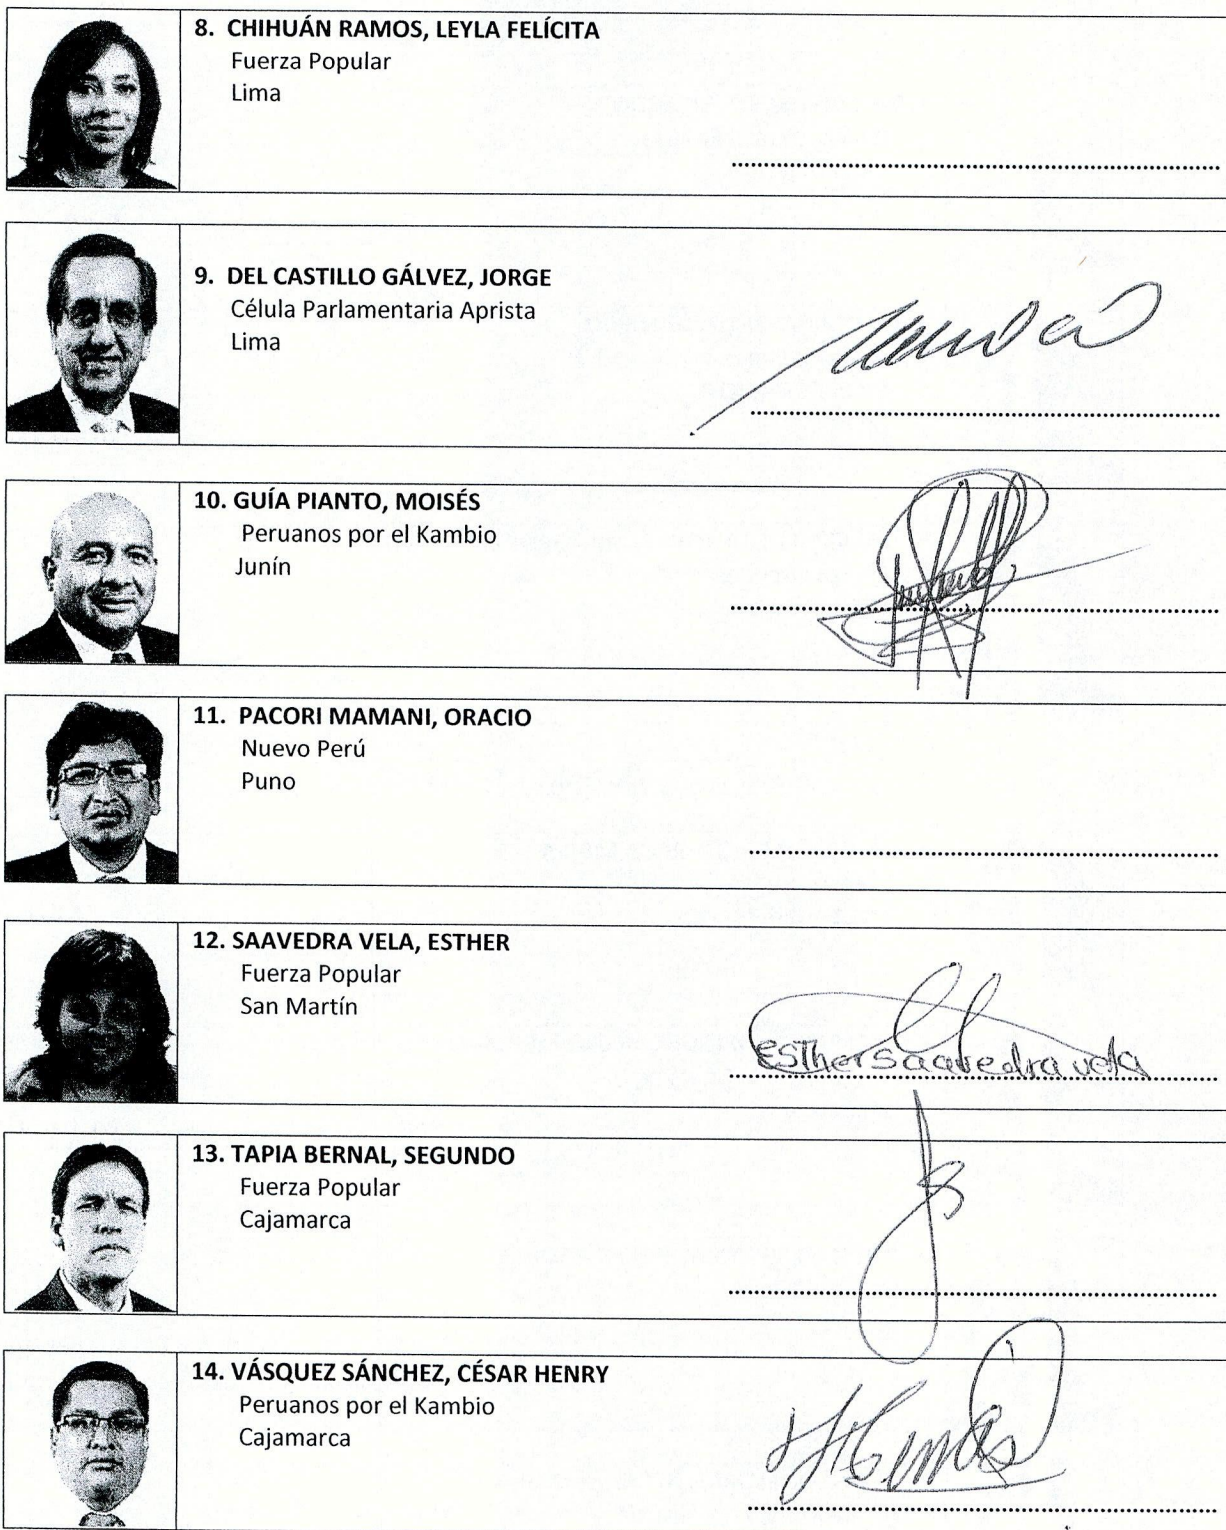 8. CHIHUÁN RAMOS, LEYLA FELÍCITA
Fuerza Popular
Lima
9. DEL CASTILLO GÁLVEZ, JORGE
Célula Parlamentaria Aprista
Lima
10. GUÍA PIANTO, MOISÉS
Peruanos por el Kambio
Junín
11. PACORI MAMANI, ORACIO
Nuevo Perú
Puno
12. SAAVEDRA VELA, ESTHER
Fuerza Popular
San Martín
Esther Saavedra vela
13. TAPIA BERNAL, SEGUNDO
Fuerza Popular
Cajamarca
14. VÁSQUEZ SÁNCHEZ, CÉSAR HENRY
Peruanos por el Kambio
Cajamarca